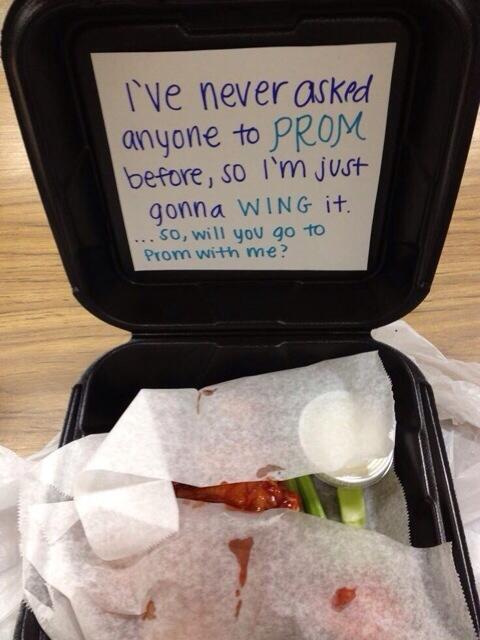 I've never asked
anyone to PROM
before, so I'm just
gonna WING it.
...so, will you go to
Prom with me?